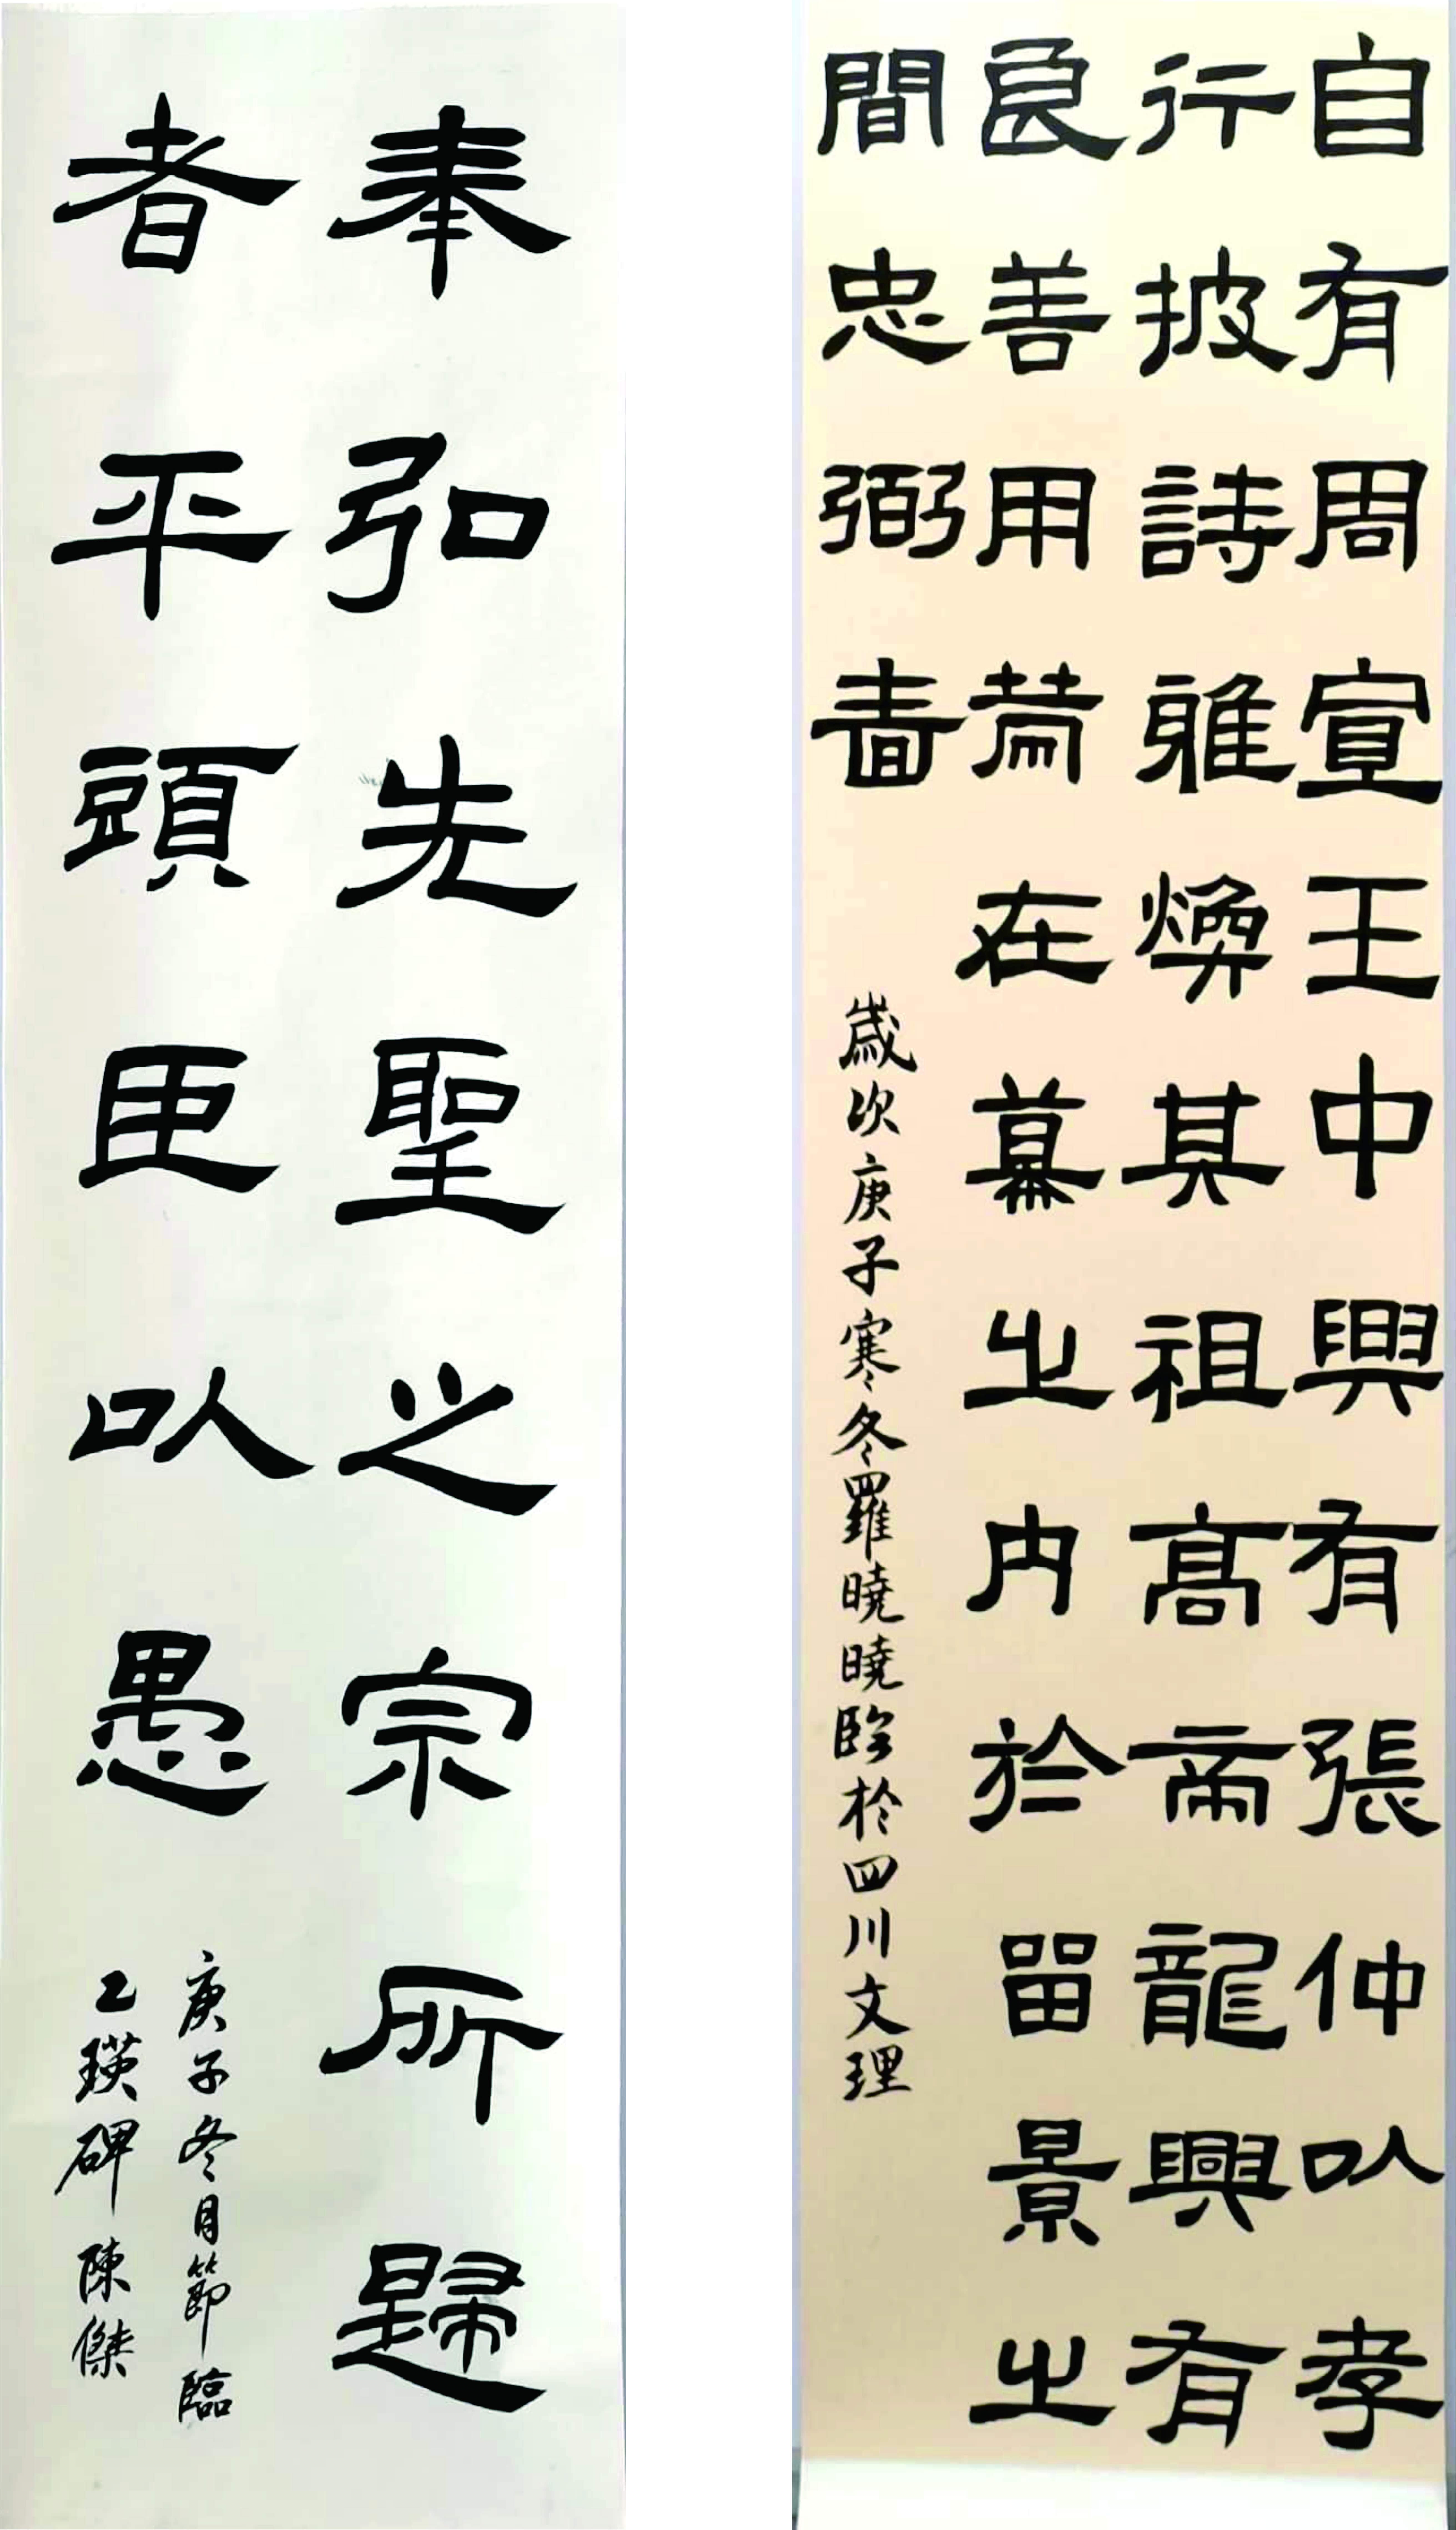 自有周宣王中興有張仲以孝
行披詩雅煥其祖高帝龍興有
良善用策在幕之內於留景之
間忠弼書
歲次庚子寒冬羅曉曉臨於四川文理
奉弘先聖之宗所歸
者平頭臣以愚
庚子冬月節臨
乙瑛碑陳傑